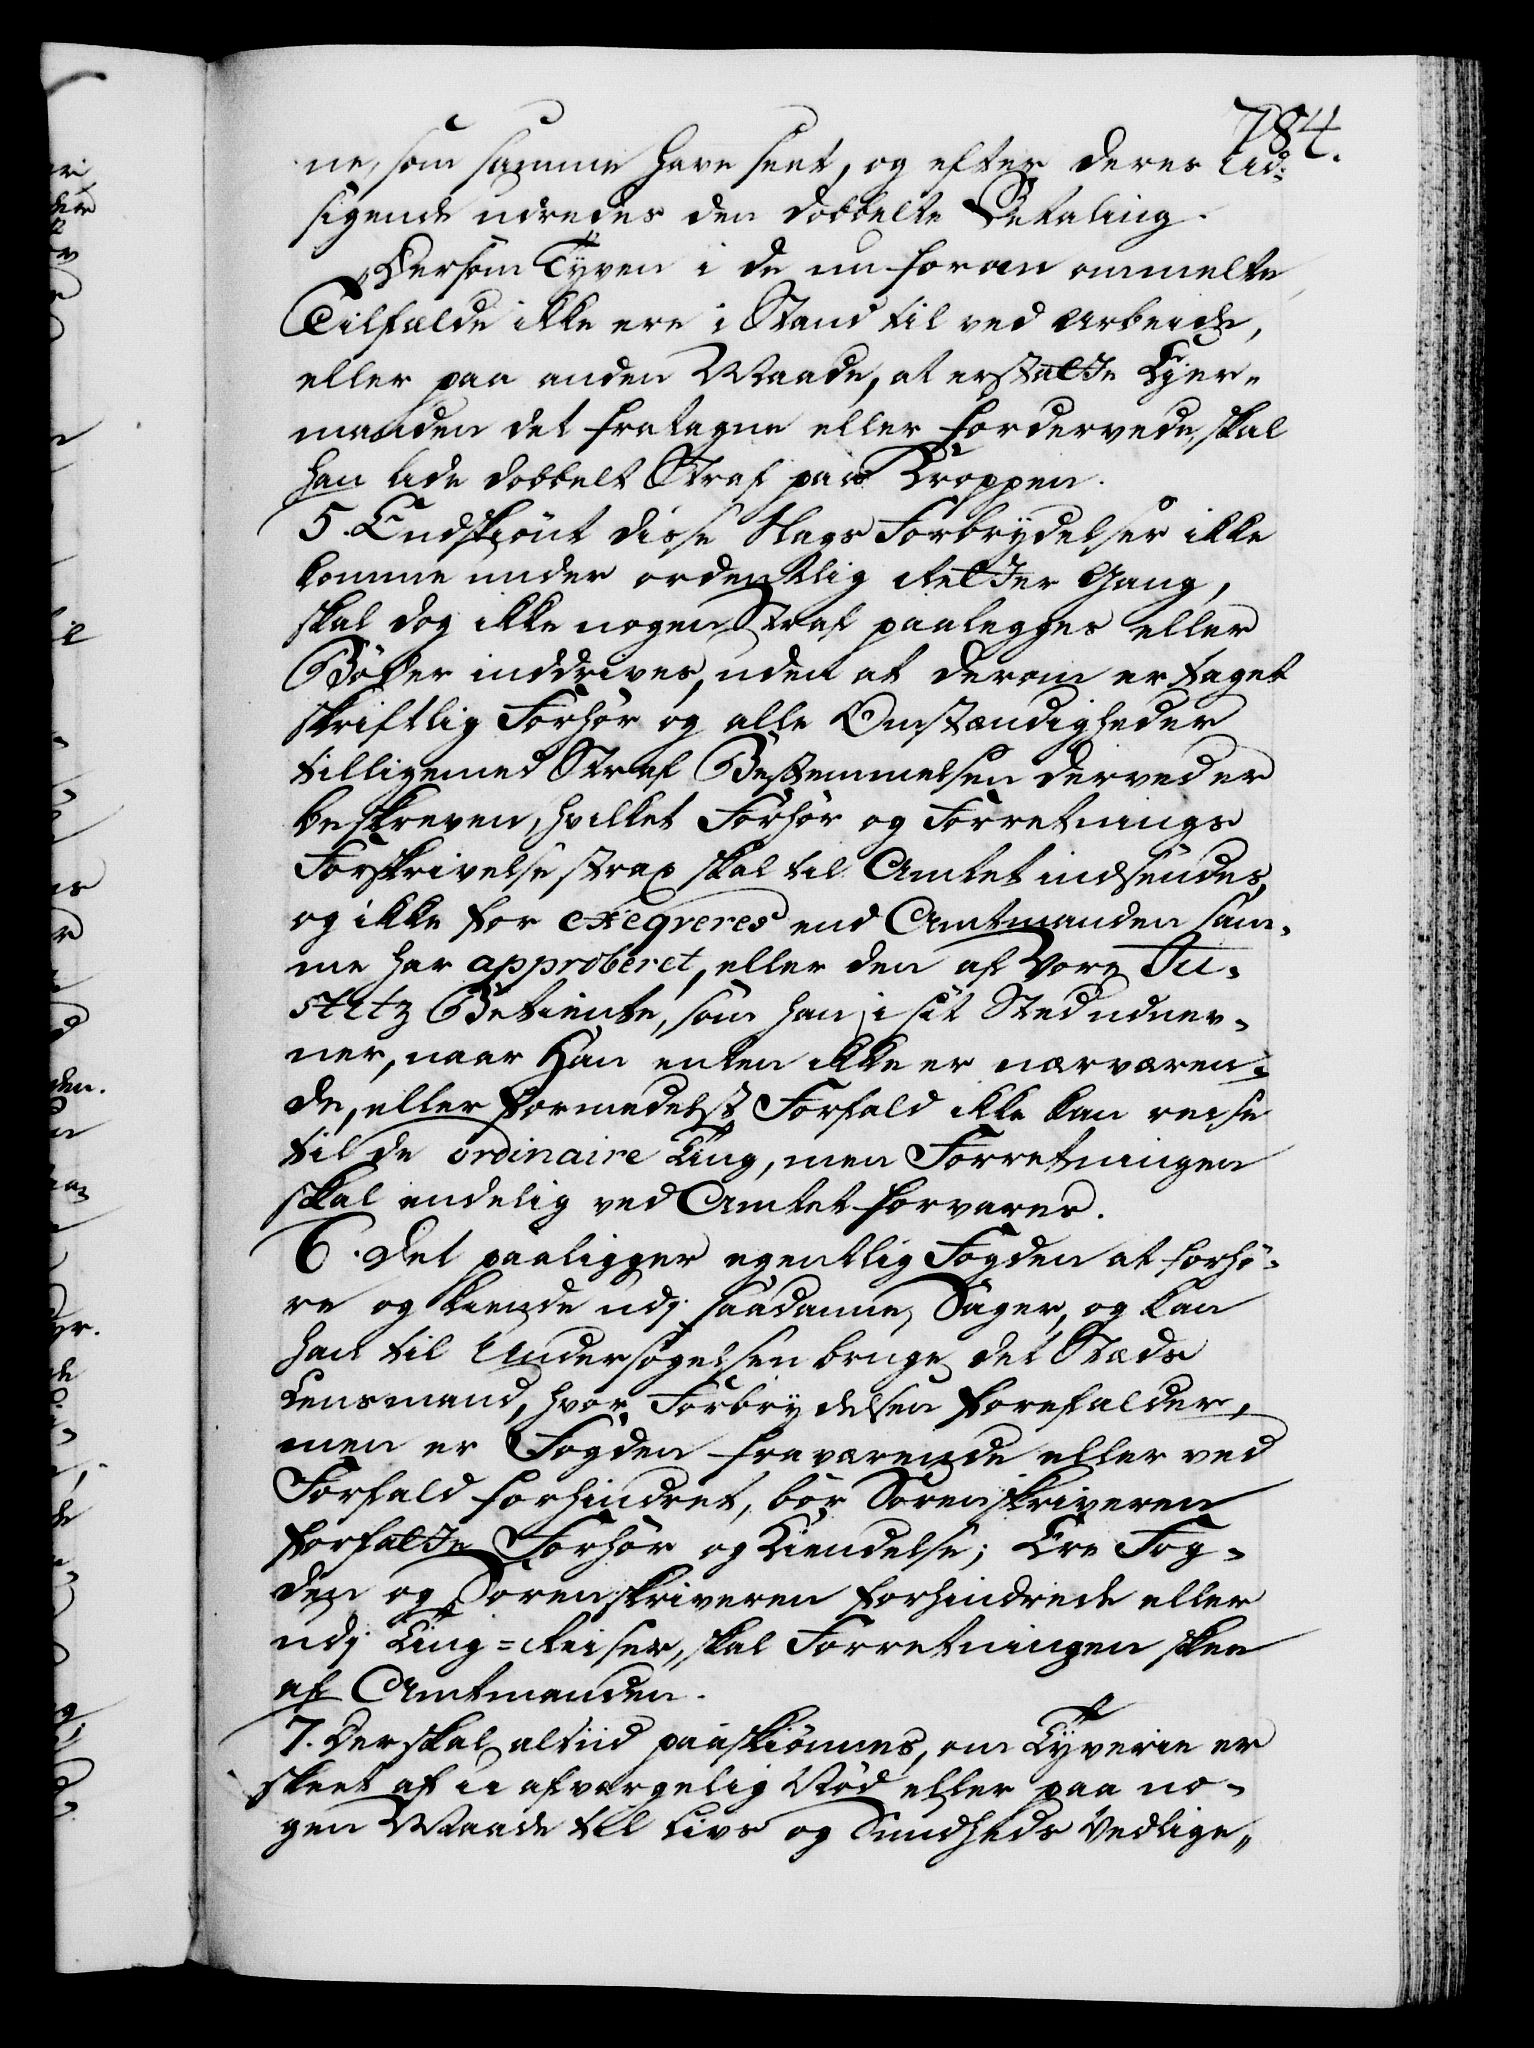 784.
ne, som samme have seet, og efter deres Ud-
sigende udredes den dobbelte Betaling.
Dersom Tyven i de nu foran ommelte
Tilfælde ikke ere i Stand til ved Arbeide,
eller paa anden Maade, at erstatte Eyer-
manden det fratagne eller fordervede, skal
han lide dobbelt Straf paa Kroppen.
5. Endskiönt disse Slags Forbrydelser ikke
komme under ordentlig Retter Gang,
skal dog ikke nogen Straf paalegges eller
Böder inddrives, uden at derom er taget
skriftlig Forhör og alle Omstændigheder
tilligemed Straf Bestemmelsen derved er
beskreven, hvilket Forhör og Forretnings
Forskrivelse strax skal til Amtet indsendes,
og ikke for exeqveres end Amtmanden sam-
me har approberet, eller den af Vore Ju-
stitz Betiente, som han i sit Sted udnev-
ner, naar Han enten ikke er nærværen-
de, eller formedelst Forfald ikke kan reise
til de ordinaire Ting, men Forretningen
skal endelig ved Amtet forvares.
6. Det paaligger egentlig Fogden at forhö-
re og kiende udj saadanne Sager, og kan
han til Undersögelsen bruge det Stæds
Lensmand, hvor Forbrydelsen forefalder,
men er Fogden fraværende eller ved
Forfald forhindret, bör Sorenskriveren
forfatte Forhör og Kiendelse; Ere Fog-
den og Sorenskriveren forhindrede eller
udj Ting-Reiser, skal Forretningen skee
af Amtmanden.
7. Der skal altiid paaskiönnes, om Tyverie er
skeet af u afværgelig Nöd eller paa no-
gen Maade til Livs og Sundheds Vedlige-